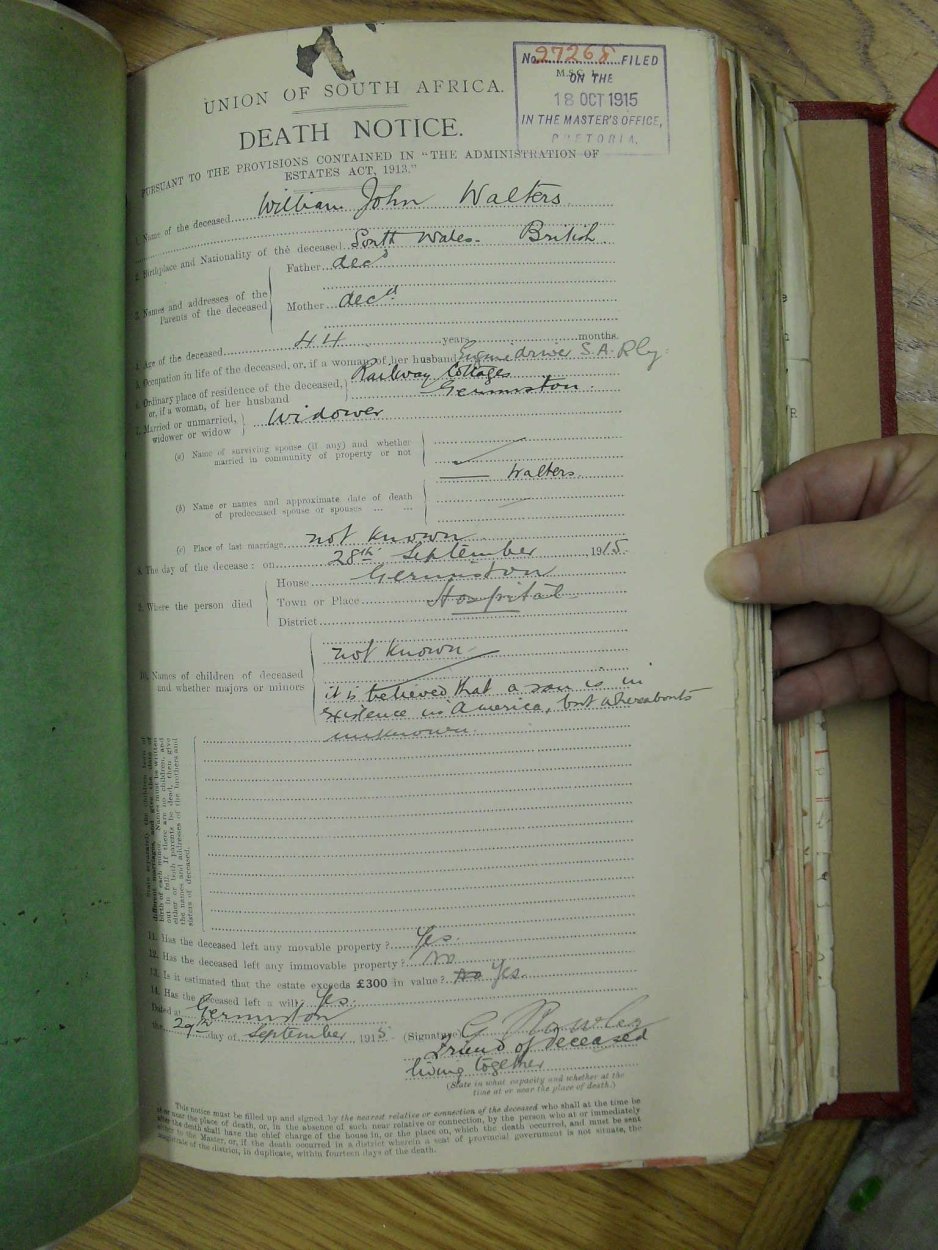 No. 27268 FILED
M.S.C.
ON THE
18 OCT 1915
IN THE MASTER'S OFFICE,
PRETORIA,
UNION OF SOUTH AFRICA.
DEATH NOTICE.
PURSUANT TO THE PROVISIONS CONTAINED IN "THE ADMINISTRATION OF
ESTATES ACT, 1913."
1. Name of the deceased William John Walters
2. Birthplace and Nationality of the deceased South Wales. British
3. Names and addresses of the Parents of the deceased
Father decd
Mother decd
4. Age of the deceased 44 years months.
5. Occupation in life of the deceased, or, if a woman, of her husband Engine driver S.A. Rly
6. Ordinary place of residence of the deceased, or, if a woman, of her husband
Railway Cottages
Germiston.
7. Married or unmarried, widower or widow
Widower
(a) Name of surviving spouse (if any) and whether
married in community of property or not
(b) Name or names and approximate date of death
of predeceased spouse or spouses ... ...
Walters.
(c) Place of last marriage not known
8. The day of the decease: on 28th September 1915.
9. Where the person died
House Germiston
Town or Place Hospital.
District
10. Names of children of deceased
and whether majors or minors
not known
it is believed that a son is in
existence in America, but whereabouts
unknown.
State separately the children born of
different marriages and give the date of
birth of each minor. Names must be written
out in full. If there are no children, and
either or both parents be dead, then give
the names and addresses of the brothers and
sisters of deceased.
11. Has the deceased left any movable property? Yes.
12. Has the deceased left any immovable property? No
13. Is it estimated that the estate exceeds £300 in value? No Yes.
14. Has the deceased left a will? Yes.
Dated at Germiston
the 29th day of September 1915
(Signature) G
Friend of deceased
living together
(State in what capacity and whether at the
time at or near the place of death.)
This notice must be filled up and signed by the nearest relative or connection of the deceased who shall at the time be
at or near the place of death, or, in the absence of such near relative or connection, by the person who at or immediately
after the death shall have the chief charge of the house in, or the place on, which the death occurred, and must be sent
either to the Master, or, if the death occurred in a district wherein a seat of provincial government is not situate, the
magistrate of the district, in duplicate, within fourteen days of the death.